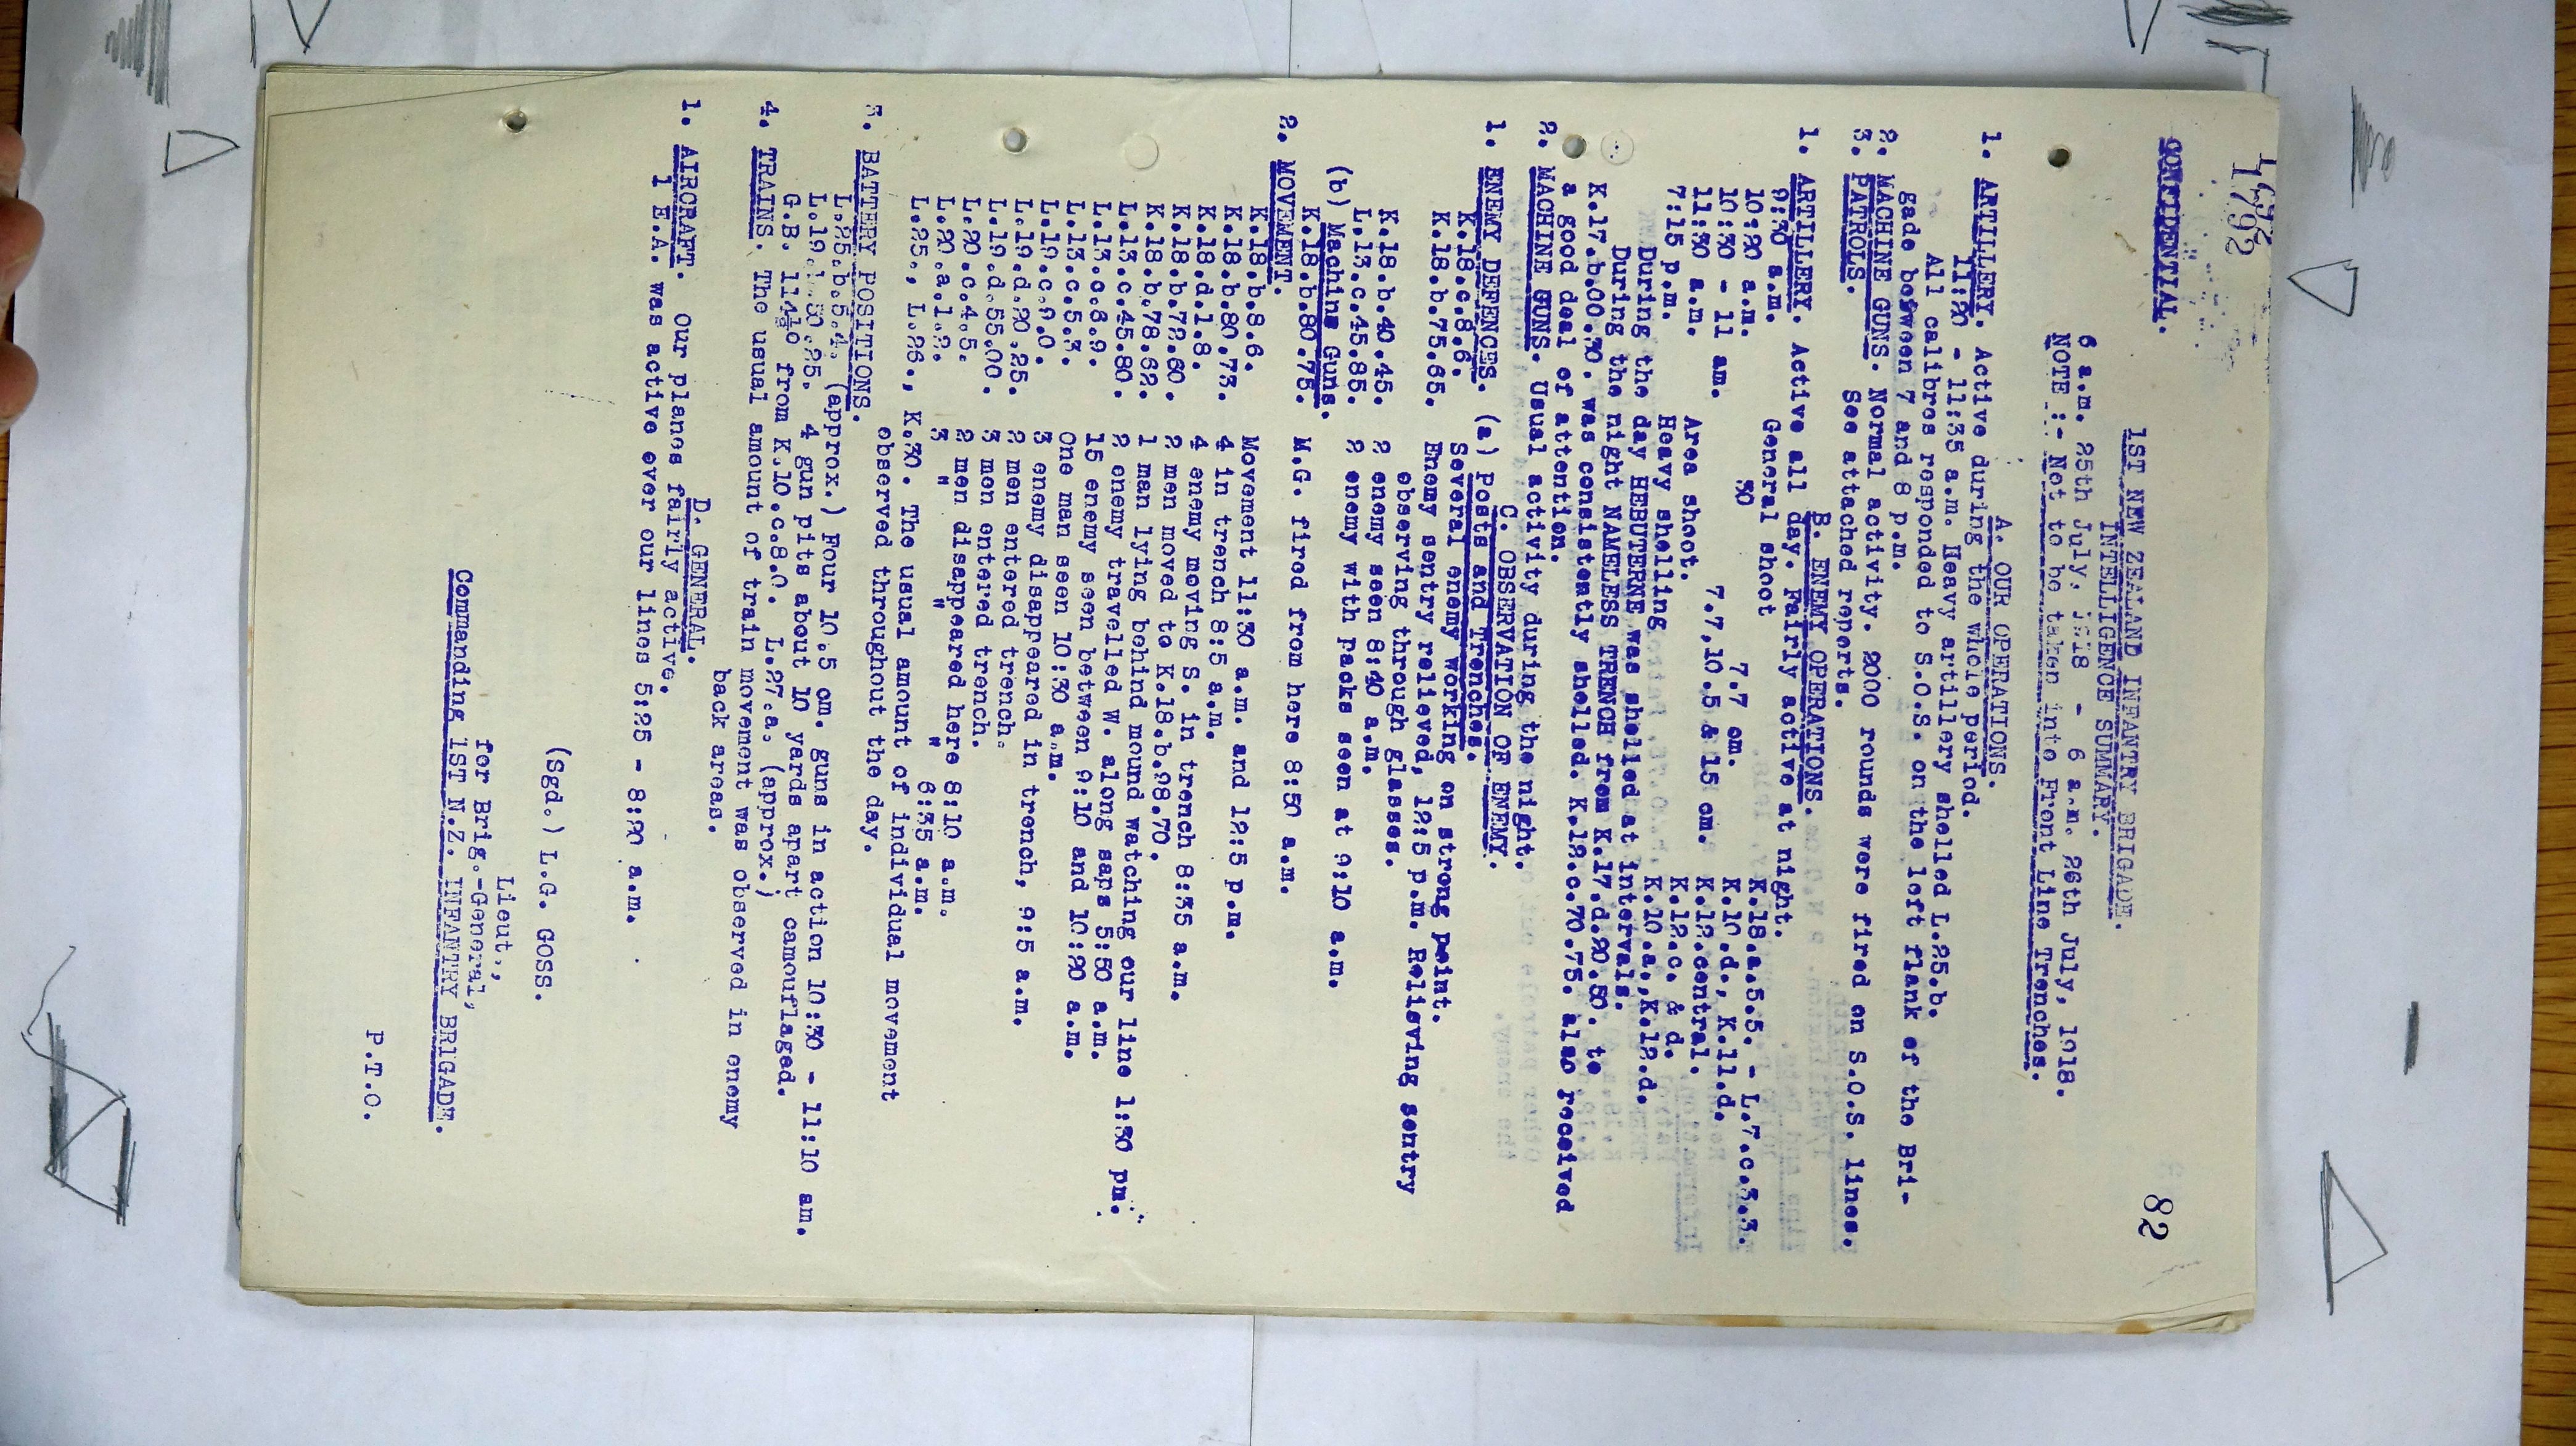 1792
82
CONFIDENTIAL.
1ST NEW ZEALAND INFANTRY BRIGADE.
INTELLIGENCE SUMMARY.
6 a.m. 25th July, 1918 - 6 a.m. 26th July, 1918.
NOTE :- Not to be taken into Front Line Trenches.
A. OUR OPERATIONS.
1. ARTILLERY. Active during the whole period.
11:20 - 11:35 a.m. Heavy artillery shelled L.25.b.
All calibres responded to S.O.S. on the left flank of the Bri-
gade between 7 and 8 p.m.
2. MACHINE GUNS. Normal activity. 2000 rounds were fired on S.O.S. lines.
3. PATROLS. See attached reports.
B. ENEMY OPERATIONS.
1. ARTILLERY. Active all day. Fairly active at night.
9:30 a.m. General shoot K.18.a.5.5. - L.7.c.3.3.
10:20 a.m. 30 7.7 cm. K.10.d., K.11.d.
10:30 - 11 am. K.12.central.
11:30 a.m. Area shoot. 7.7,10.5 & 15 cm. K.12.c. & d.
7:15 p.m. Heavy shelling K.10.a.,K.12.d.
During the day HEBUTERNE was shelled at intervals.
During the night NAMELESS TRENCH from K.17.d.20.50. to
K.17.b.00.30. was consistently shelled. K.12.c.70.75. also received
a good deal of attention.
2. MACHINE GUNS. Usual activity during the night.
C. OBSERVATION OF ENEMY.
1. ENEMY DEFENCES. (a) Posts and Trenches.
K.18.c.8.6. Several enemy working on strong point.
K.18.b.75.65. Enemy sentry relieved, 12:5 p.m. Relieving sentry
observing through glasses.
K.18.b.40.45. 2 enemy seen 8:40 a.m.
L.13.c.45.85. 2 enemy with packs seen at 9:10 a.m.
(b) Machine Guns.
K.18.b.80.75. M.G. fired from here 8:50 a.m.
2. MOVEMENT.
K.18.b.8.6. Movement 11:30 a.m. and 12:5 p.m.
K.18.b.80.73. 4 in trench 8:5 a.m.
K.18.d.1.8. 4 enemy moving S. in trench 8:35 a.m.
K.18.b.72.60. 2 men moved to K.18.b.98.70.
K.18.b.78.62. 1 man lying behind mound watching our line 1:30 pm.
L.13.c.45.80. 2 enemy travelled W. along saps 5:50 a.m.
L.13.c.8.9. 15 enemy seen between 9:10 and 10:20 a.m.
L.13.c.5.3. One man seen 10:30 a.m.
L.19.c.9.0. 3 enemy disappeared in trench, 9:5 a.m.
L.19.d.20.25. 2 men entered trench.
L.19.d.55.00. 3 men entered trench.
L.20.c.4.5. 2 men disappeared here 8:10 a.m.
L.20.a.1.2. 3 " " " 6:35 a.m.
L.25., L.26., K.30. The usual amount of individual movement
observed throughout the day.
3. BATTERY POSITIONS.
L.25.b.5.4. (approx.) Four 10.5 cm. guns in action 10:30 - 11:10 am.
L.19. .50.25. 4 gun pits about 10 yards apart camouflaged.
G.B. 114½° from K.10.c.8.0. L.27.a. (approx.)
4. TRAINS. The usual amount of train movement was observed in enemy
back areas.
D. GENERAL.
1. AIRCRAFT. Our planes fairly active.
1 E.A. was active over our lines 5:25 - 8:20 a.m.
(Sgd.) L.G. GOSS.
Lieut.,
for Brig.-General,
Commanding 1ST N.Z. INFANTRY BRIGADE.
P.T.O.